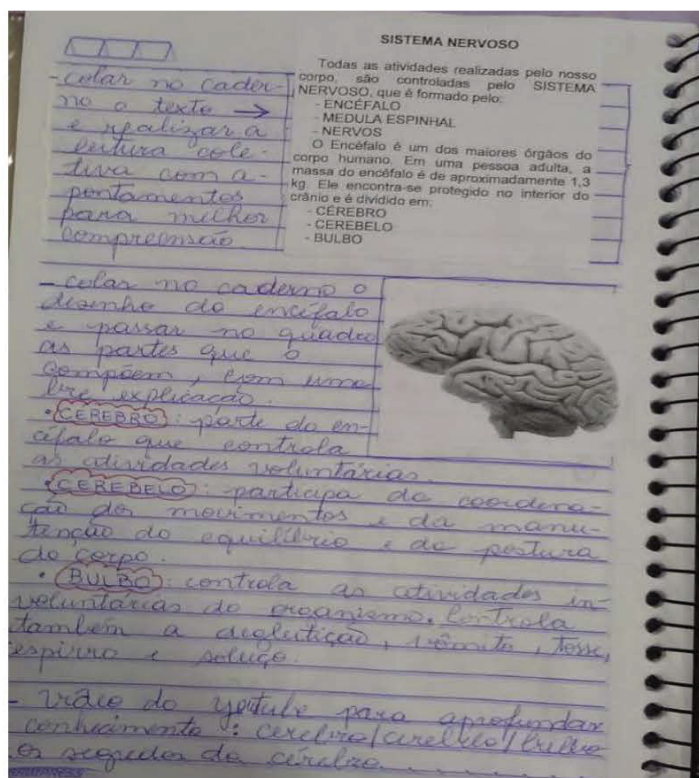 - colar no cader-
no o texto →
e realizar a
leitura cole-
tiva com a-
pontamentos
para melhor
compreensão
SISTEMA NERVOSO
Todas as atividades realizadas pelo nosso
corpo, são controladas pelo SISTEMA
NERVOSO, que é formado pelo:
- ENCÉFALO
- MEDULA ESPINHAL
- NERVOS
O Encéfalo é um dos maiores órgãos do
corpo humano. Em uma pessoa adulta, a
massa do encéfalo é de aproximadamente 1,3
kg. Ele encontra-se protegido no interior do
crânio e é dividido em:
- CÉREBRO
- CEREBELO
- BULBO
- colar no caderno o
desenho do encéfalo
e passar no quadro
as partes que o
compõem, com uma
explicação.
• CEREBRO: parte do en-
céfalo que controla
as atividades voluntárias.
• CEREBELO: participa da coordena-
ção dos movimentos e da manu-
tenção do equilíbrio e da postura
do corpo.
• BULBO: controla as atividades in-
voluntárias do organismo. Controla
também a deglutição, vômito, tosse,
espirro e soluço.
- vídeo do youtube para aprofundar
conhecimento: cerebro/cerebelo/bulbo
os segredos do cérebro